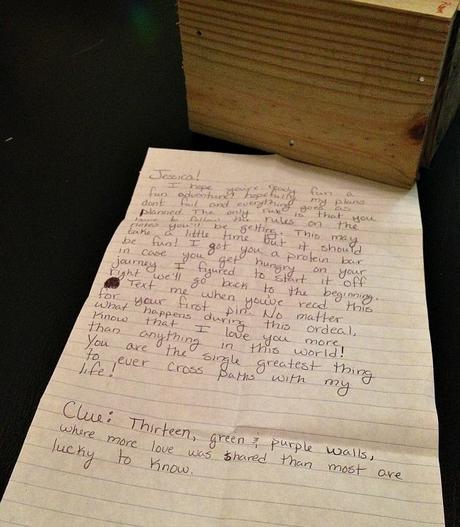 Jessica!
I hope you're ready fun a
fun adventure! hopefully my plans
dont fail and everything goes as
planned. The only rule is that you
have to follow the rules on the
notes you'll be getting. This may
take a little time but it should
be fun! I got you a protein bar
in case you get hungry on your
journey. I figured to start it off
right we'll go back to the beginning.
Text me when you've read this
for your first pin. No matter
what happens during this ordeal,
Know that I love you more
than anything in this world!
You are the single greatest thing
to ever cross paths with my
life!
Clue: Thirteen, green & purple walls,
where more love was shared than most are
lucky to know.